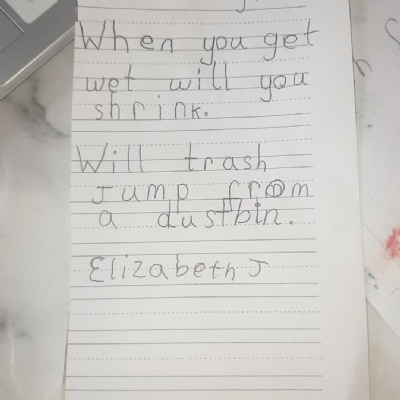 When you get
wet will you
shrink.
Will trash
Jump from
a dustbin.
Elizabeth J